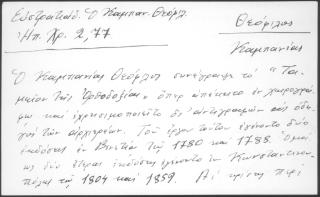 Εὐστρατιάδ. Ὁ Καμπαν. Θεόφιλ.
Ἠπ. Χρ. 2, 77
Θεόφιλος
Καμπανίας
Ὁ Καμπανίας Θεόφιλος συνέγραψε τὸ "Τα-
μεῖον τῆς Ὀρθοδοξίας" ὅπερ ἀπέκειτο ἐν χειρογρά-
φῳ καὶ ἐχρησιμοποιεῖτο δι' ἀντιγραφῶν ὡς ὁδη-
γὸς τῶν ἀρχιερέων. Τοῦ ἔργου τούτου ἐγένοντο δύο
ἐκδόσεις ἐν Βενετίᾳ τῷ 1780 καὶ 1788.
ὡς δύο ἕτεραι ἐκδόσεις ἐγένοντο ἐν Κωνσταντινου-
πόλει τῷ 1804 καὶ 1859. Αἱ κρίσεις περὶ